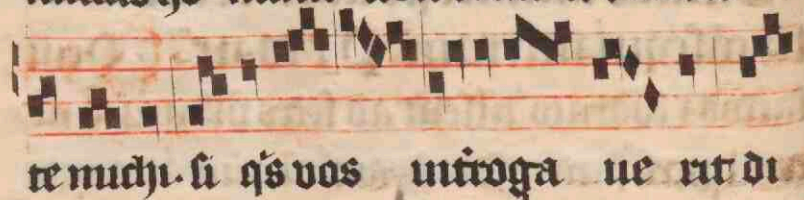 te michi. si q̄s vos int̄roga ue rit di